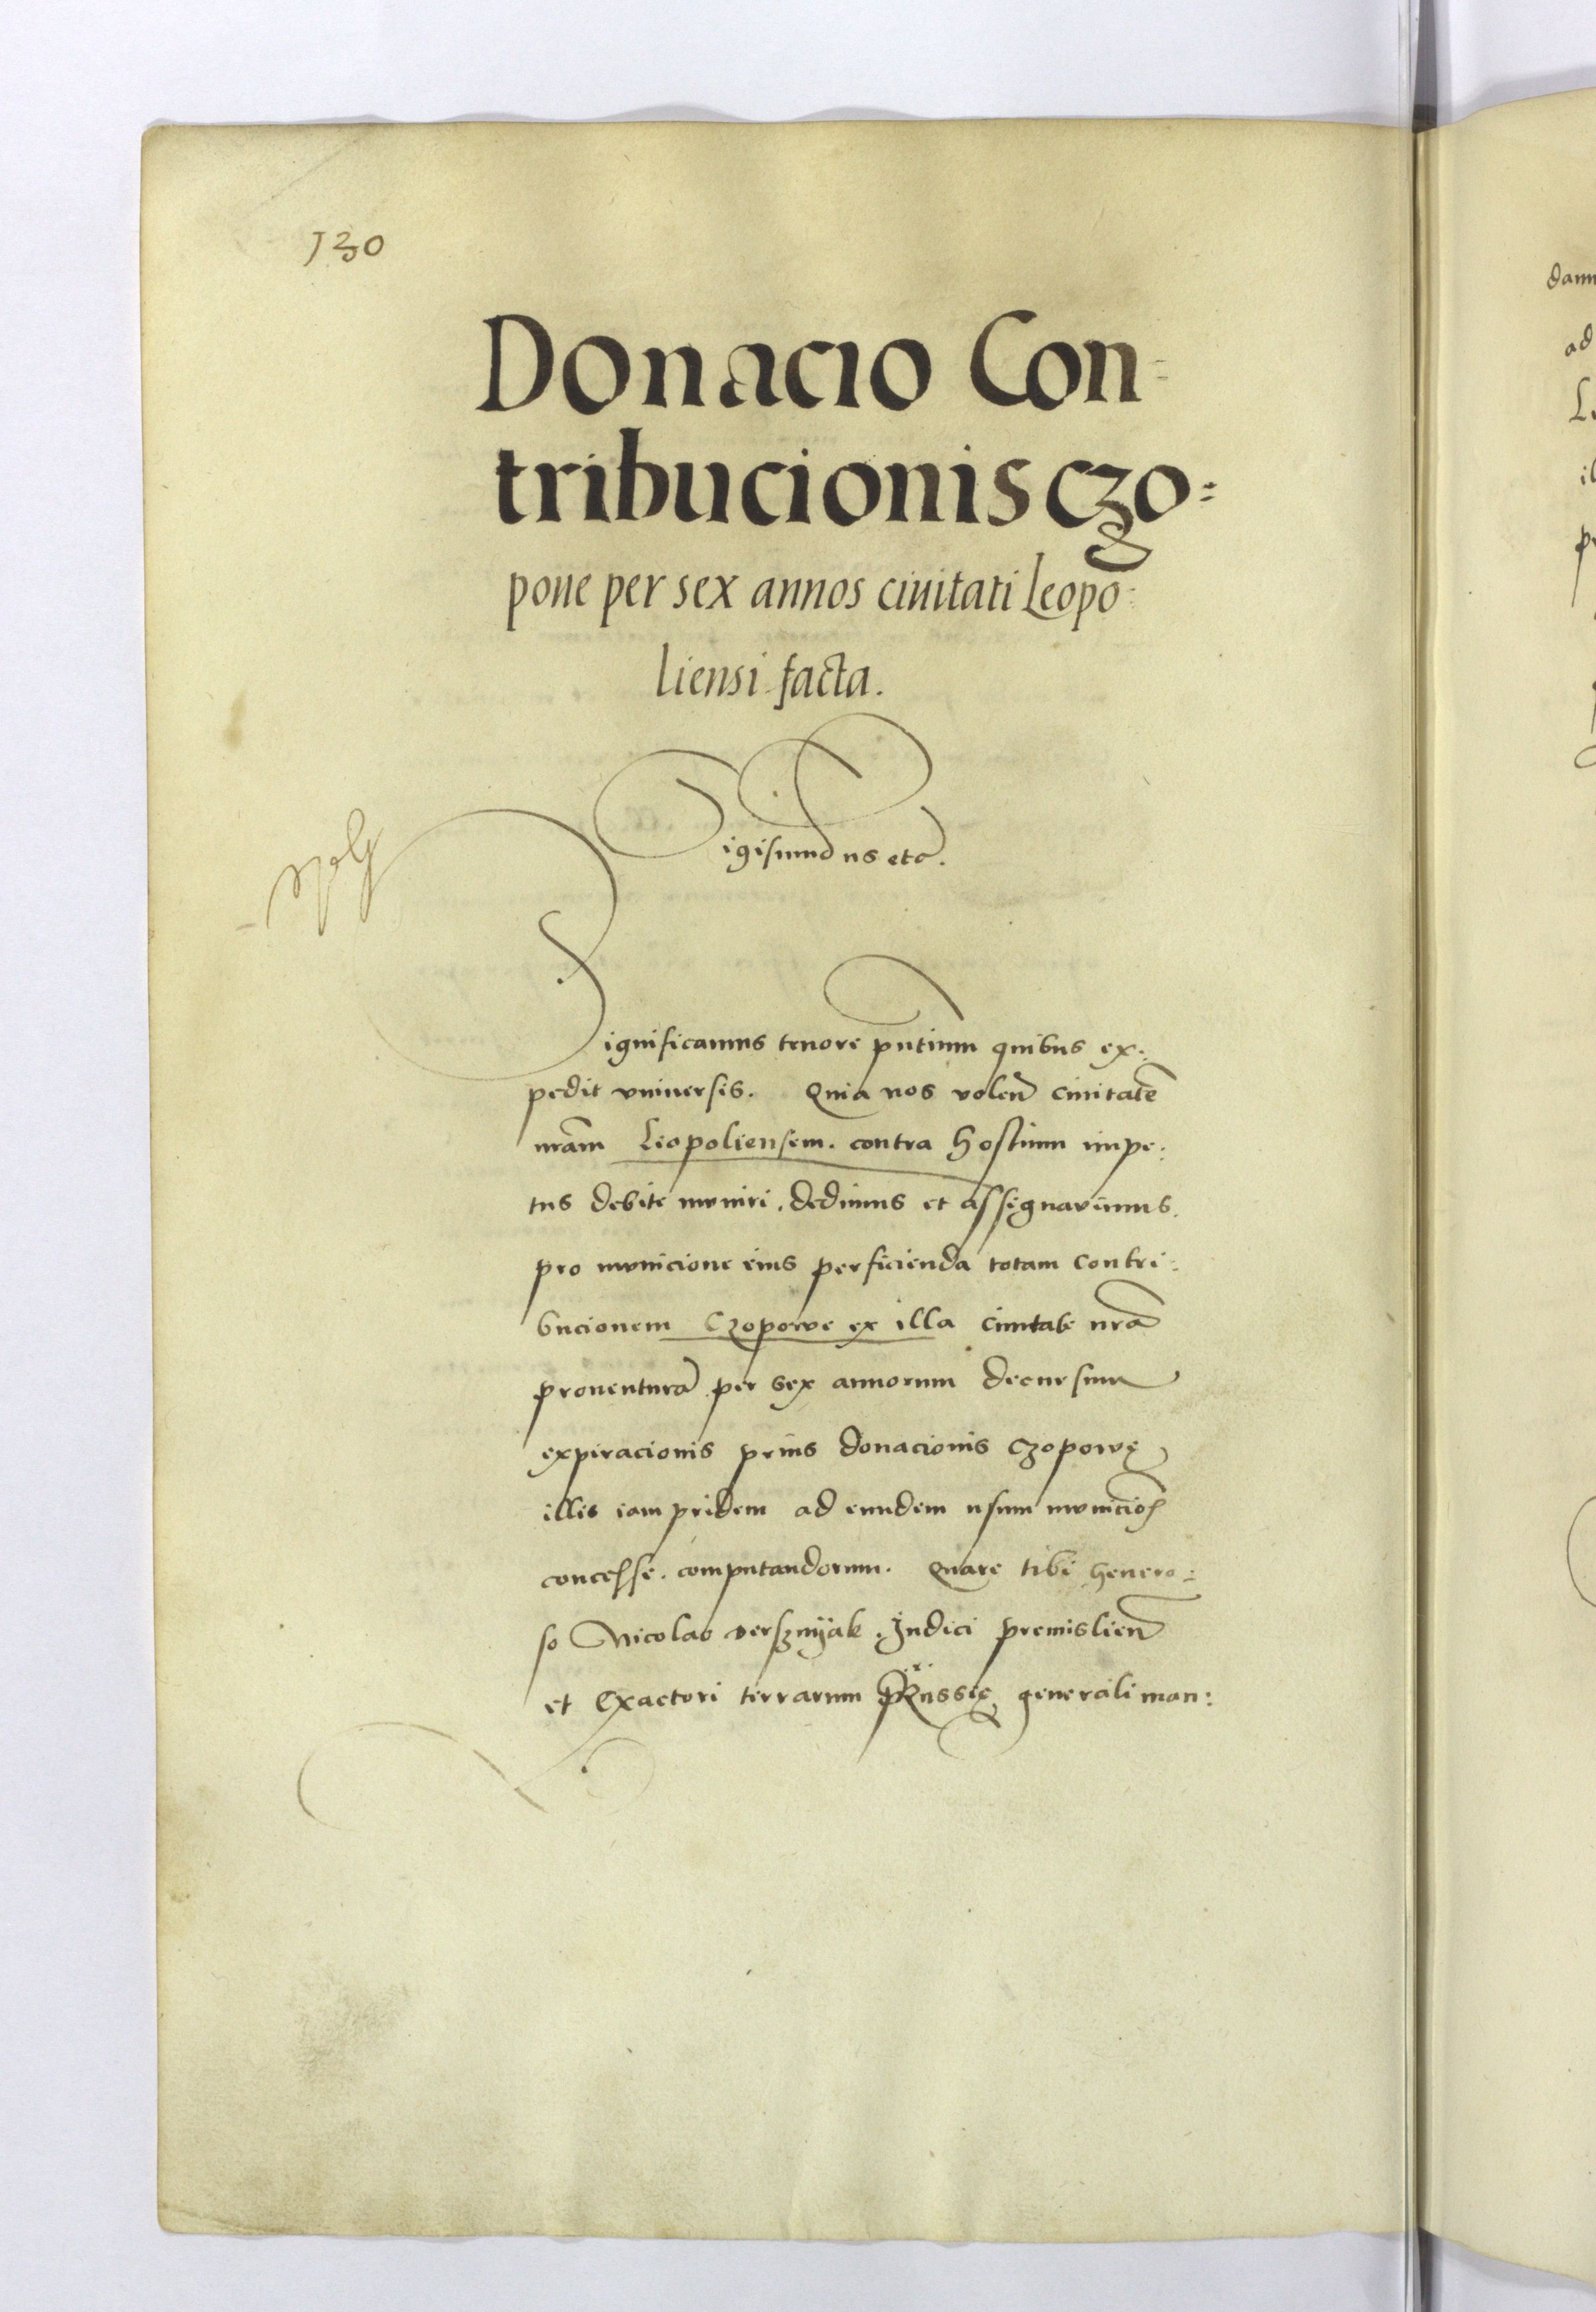 130
Donacio Con=
tribucionis czo=
poue per sex annos ciuitati Leopo=
liensi facta.
Sigismundus etc.
Significamus tenore pntium quibus ex:
pedit vniuersis. Quia nos volen ciuitate
nram Leopoliensem. contra hostium impe:
tus debite mvniri. dedimus et assignauimus.
pro mvnicione eius perficienda totam contri:
bucionem Czopowe ex illa ciuitate nra
prouentura per sex annorum decursum
expiracionis prius donacionis czopowę
illis iam pridem ad eundem usum mvnicio
concesse. computandorum. Quare tibi genero:
so Nicolao verszmyak. Judici premislien
et Exactori terrarum Russię generali man:
dam
ad